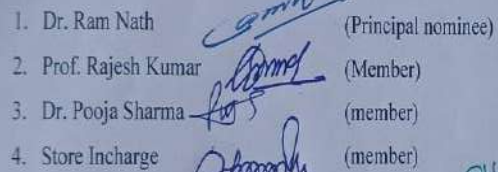 1. Dr. Ram Nath (Principal nominee)
2. Prof. Rajesh Kumar (Member)
3. Dr. Pooja Sharma (member)
4. Store Incharge (member)